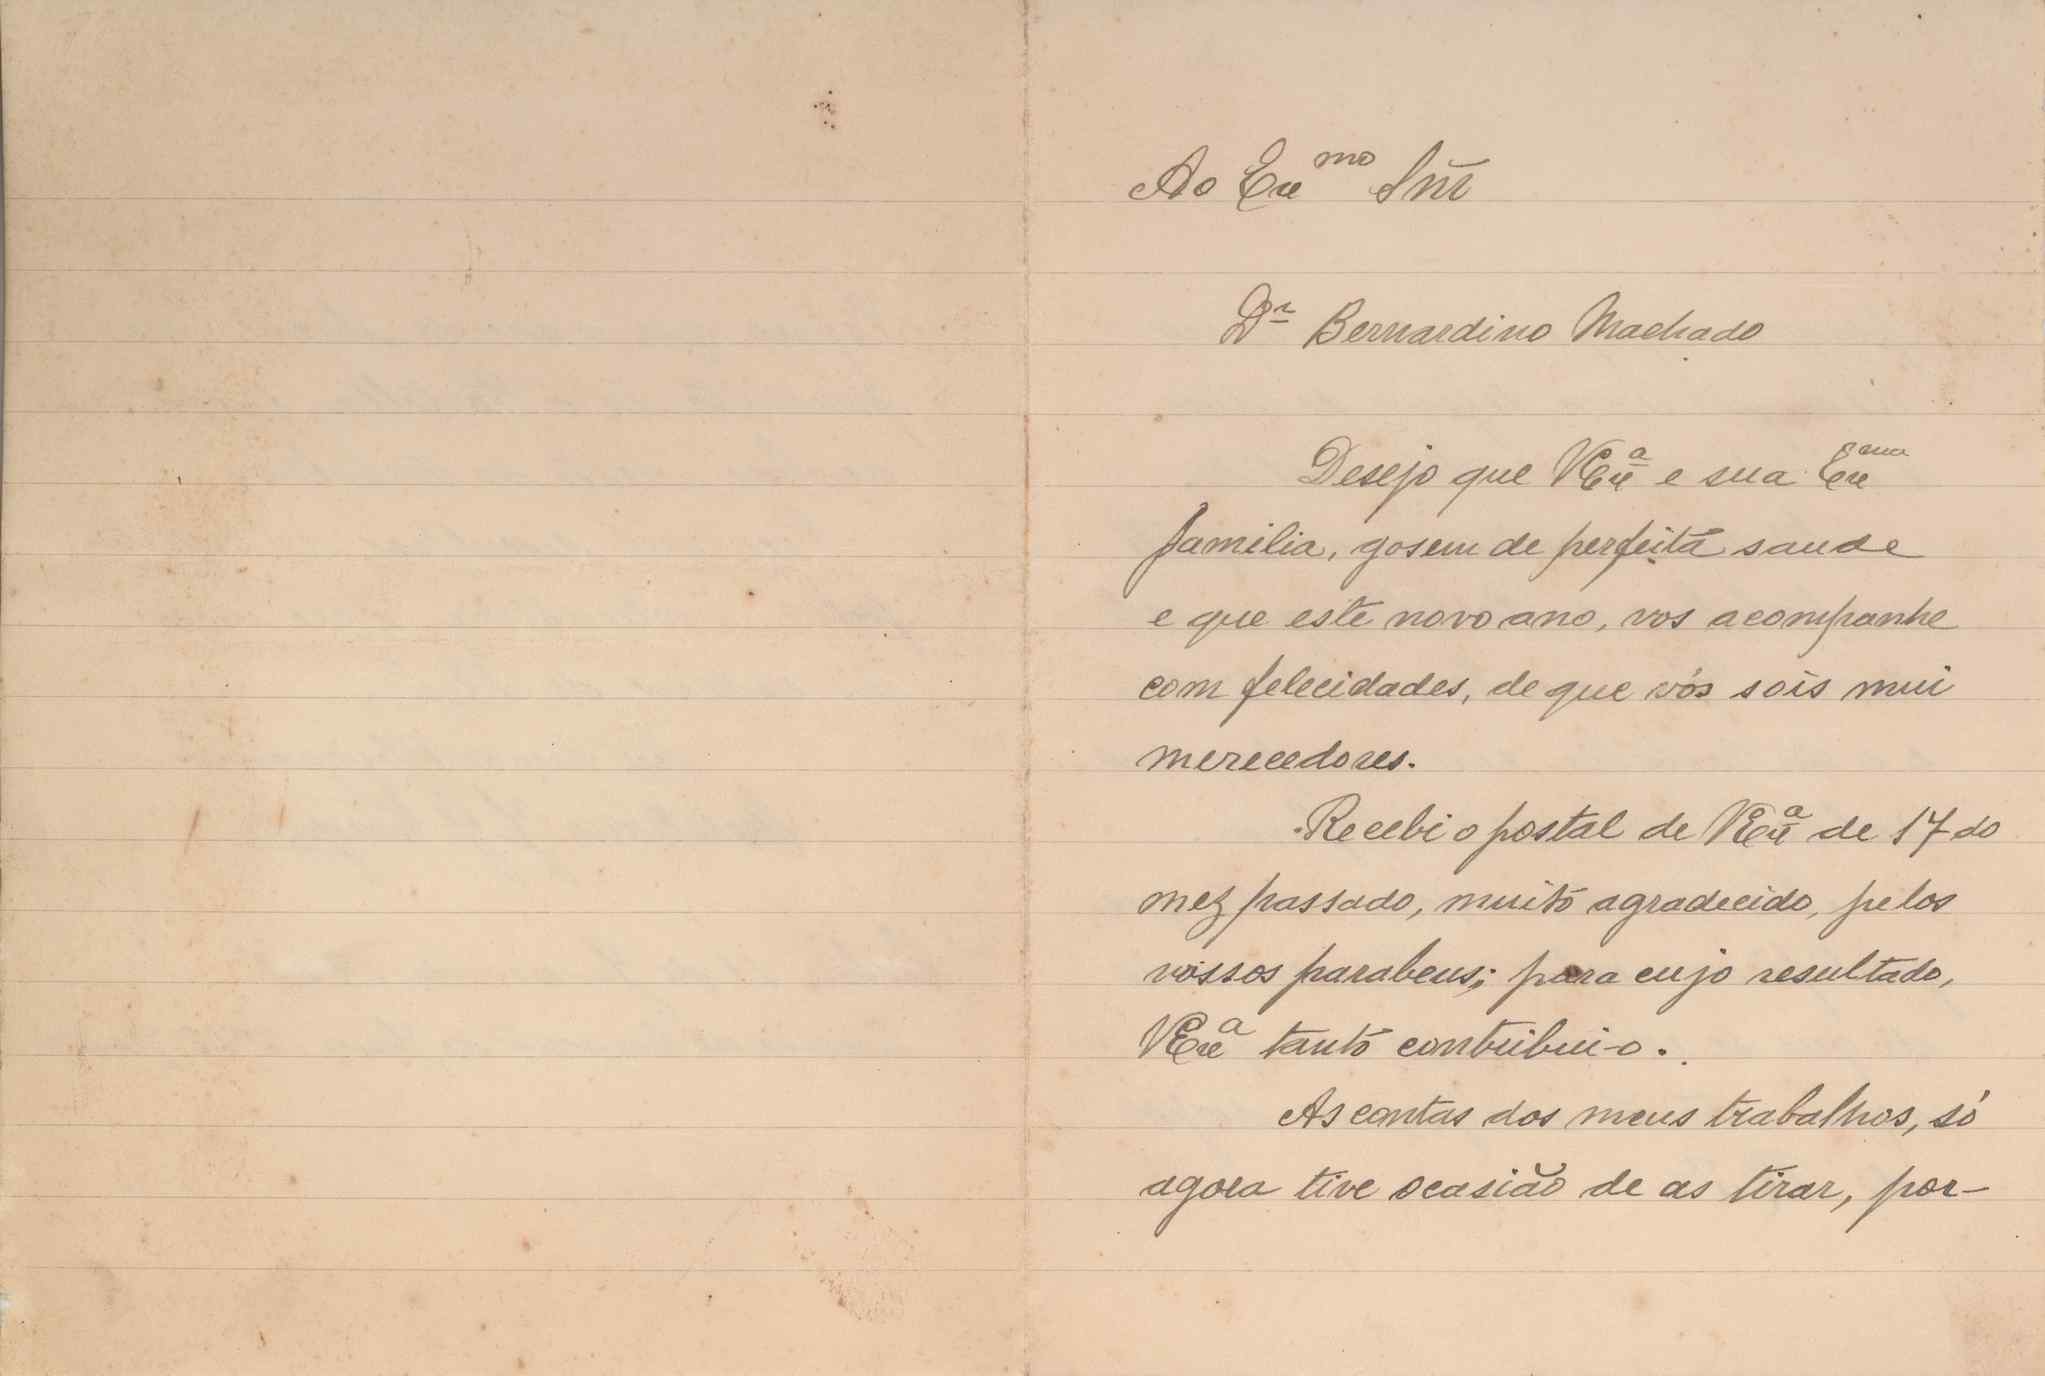 Ao Exmo Snr
Dr Bernardino Machado
Desejo que VExa e sua Exama
familia, gosem de perfeita saude
e que este novo ano, vos acompanhe
com felecidades, de que vós sois mui
merecedores.
Recebi o postal de VExa de 17 do
mez passado, muito agradecido, pelos
vossos parabens; para cujo resultado,
VExa tanto contribui-o.
As contas dos meus trabalhos, só
agora tive ocasião de as tirar, por-